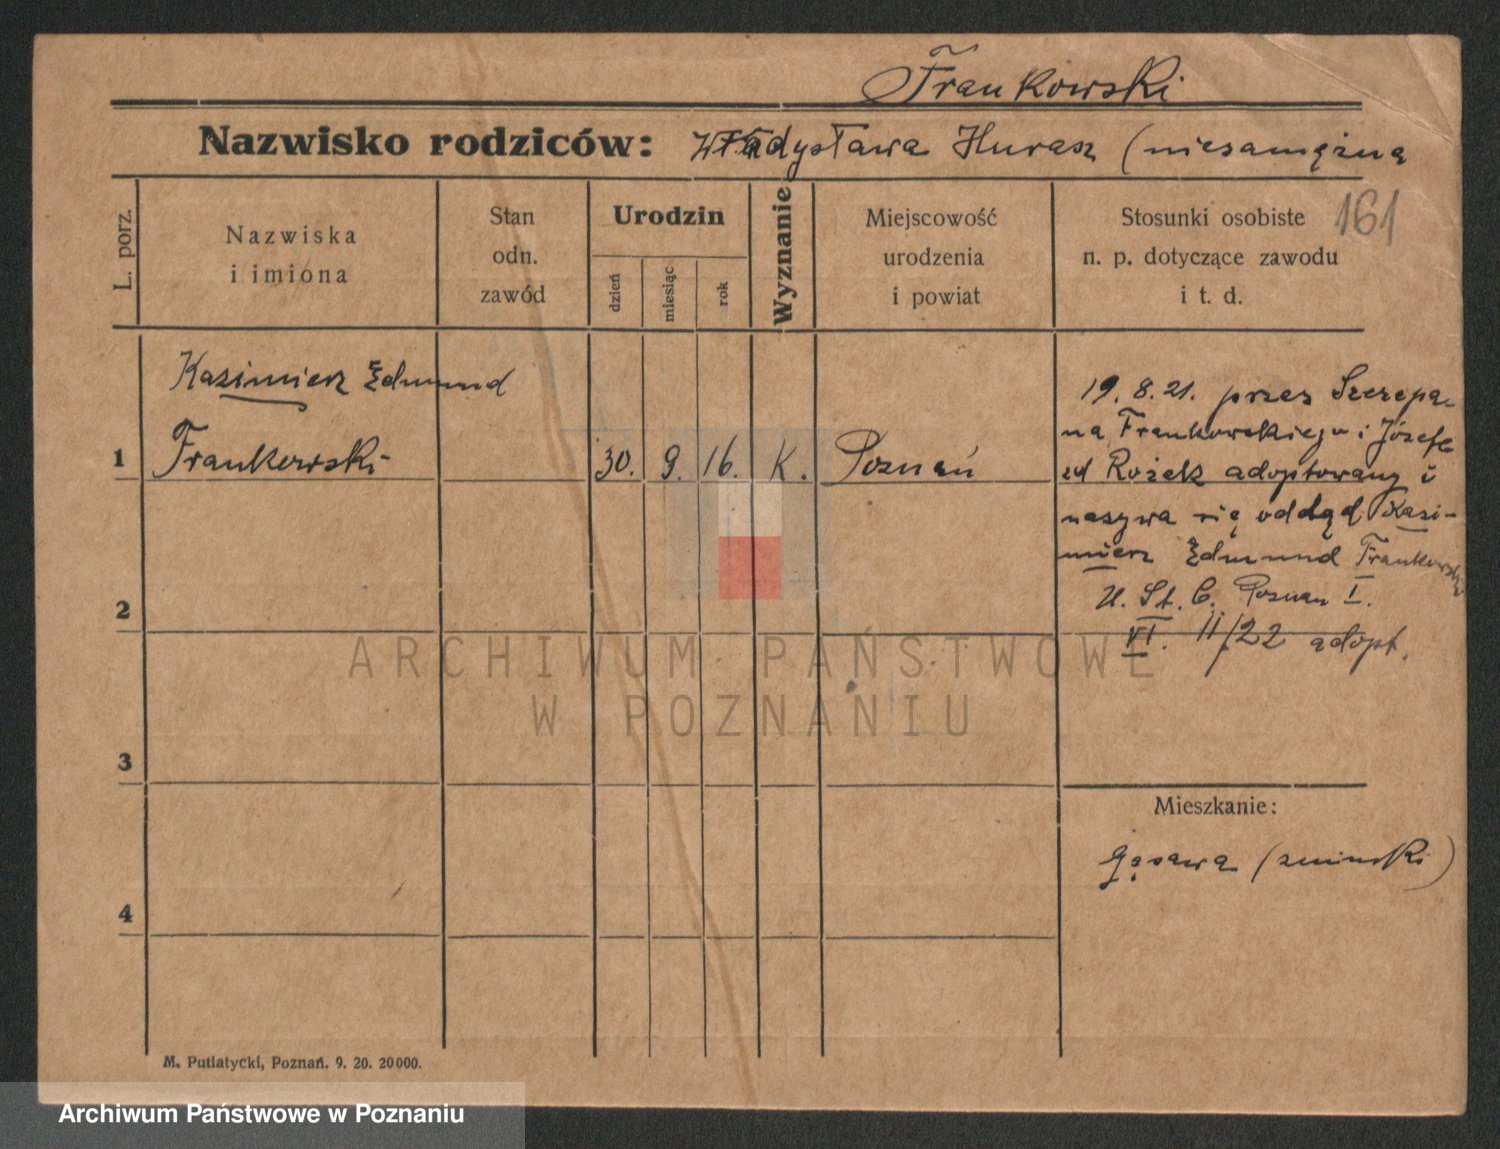 Frankowski
Nazwisko rodziców: Władysława Hurasz (niezamężna
161
L. porz.
Nazwiska
i imiona
Stan
odn.
zawód
Urodzin
dzień
miesiąc
rok
Wyznanie
Miejscowość
urodzenia
i powiat
Stosunki osobiste
n. p. dotyczące zawodu
i t. d.
Kazimierz Edmund
1 Frankowski 30. 9. 16. K. Poznań
19. 8. 21. przez Szczepa-
na Frankowskiego i Józefę
zd Rożek adoptowany i
nazywa się odtąd Kazi-
mierz Edmund Frankowski
U. St. C. Poznań I.
VI. 11/22 adopt.
2
3
4
Mieszkanie:
Gąsawa (żniński)
M. Putiatycki, Poznań. 9. 20. 20000.
ARCHIWUM PAŃSTWOWE
W POZNANIU
Archiwum Państwowe w Poznaniu